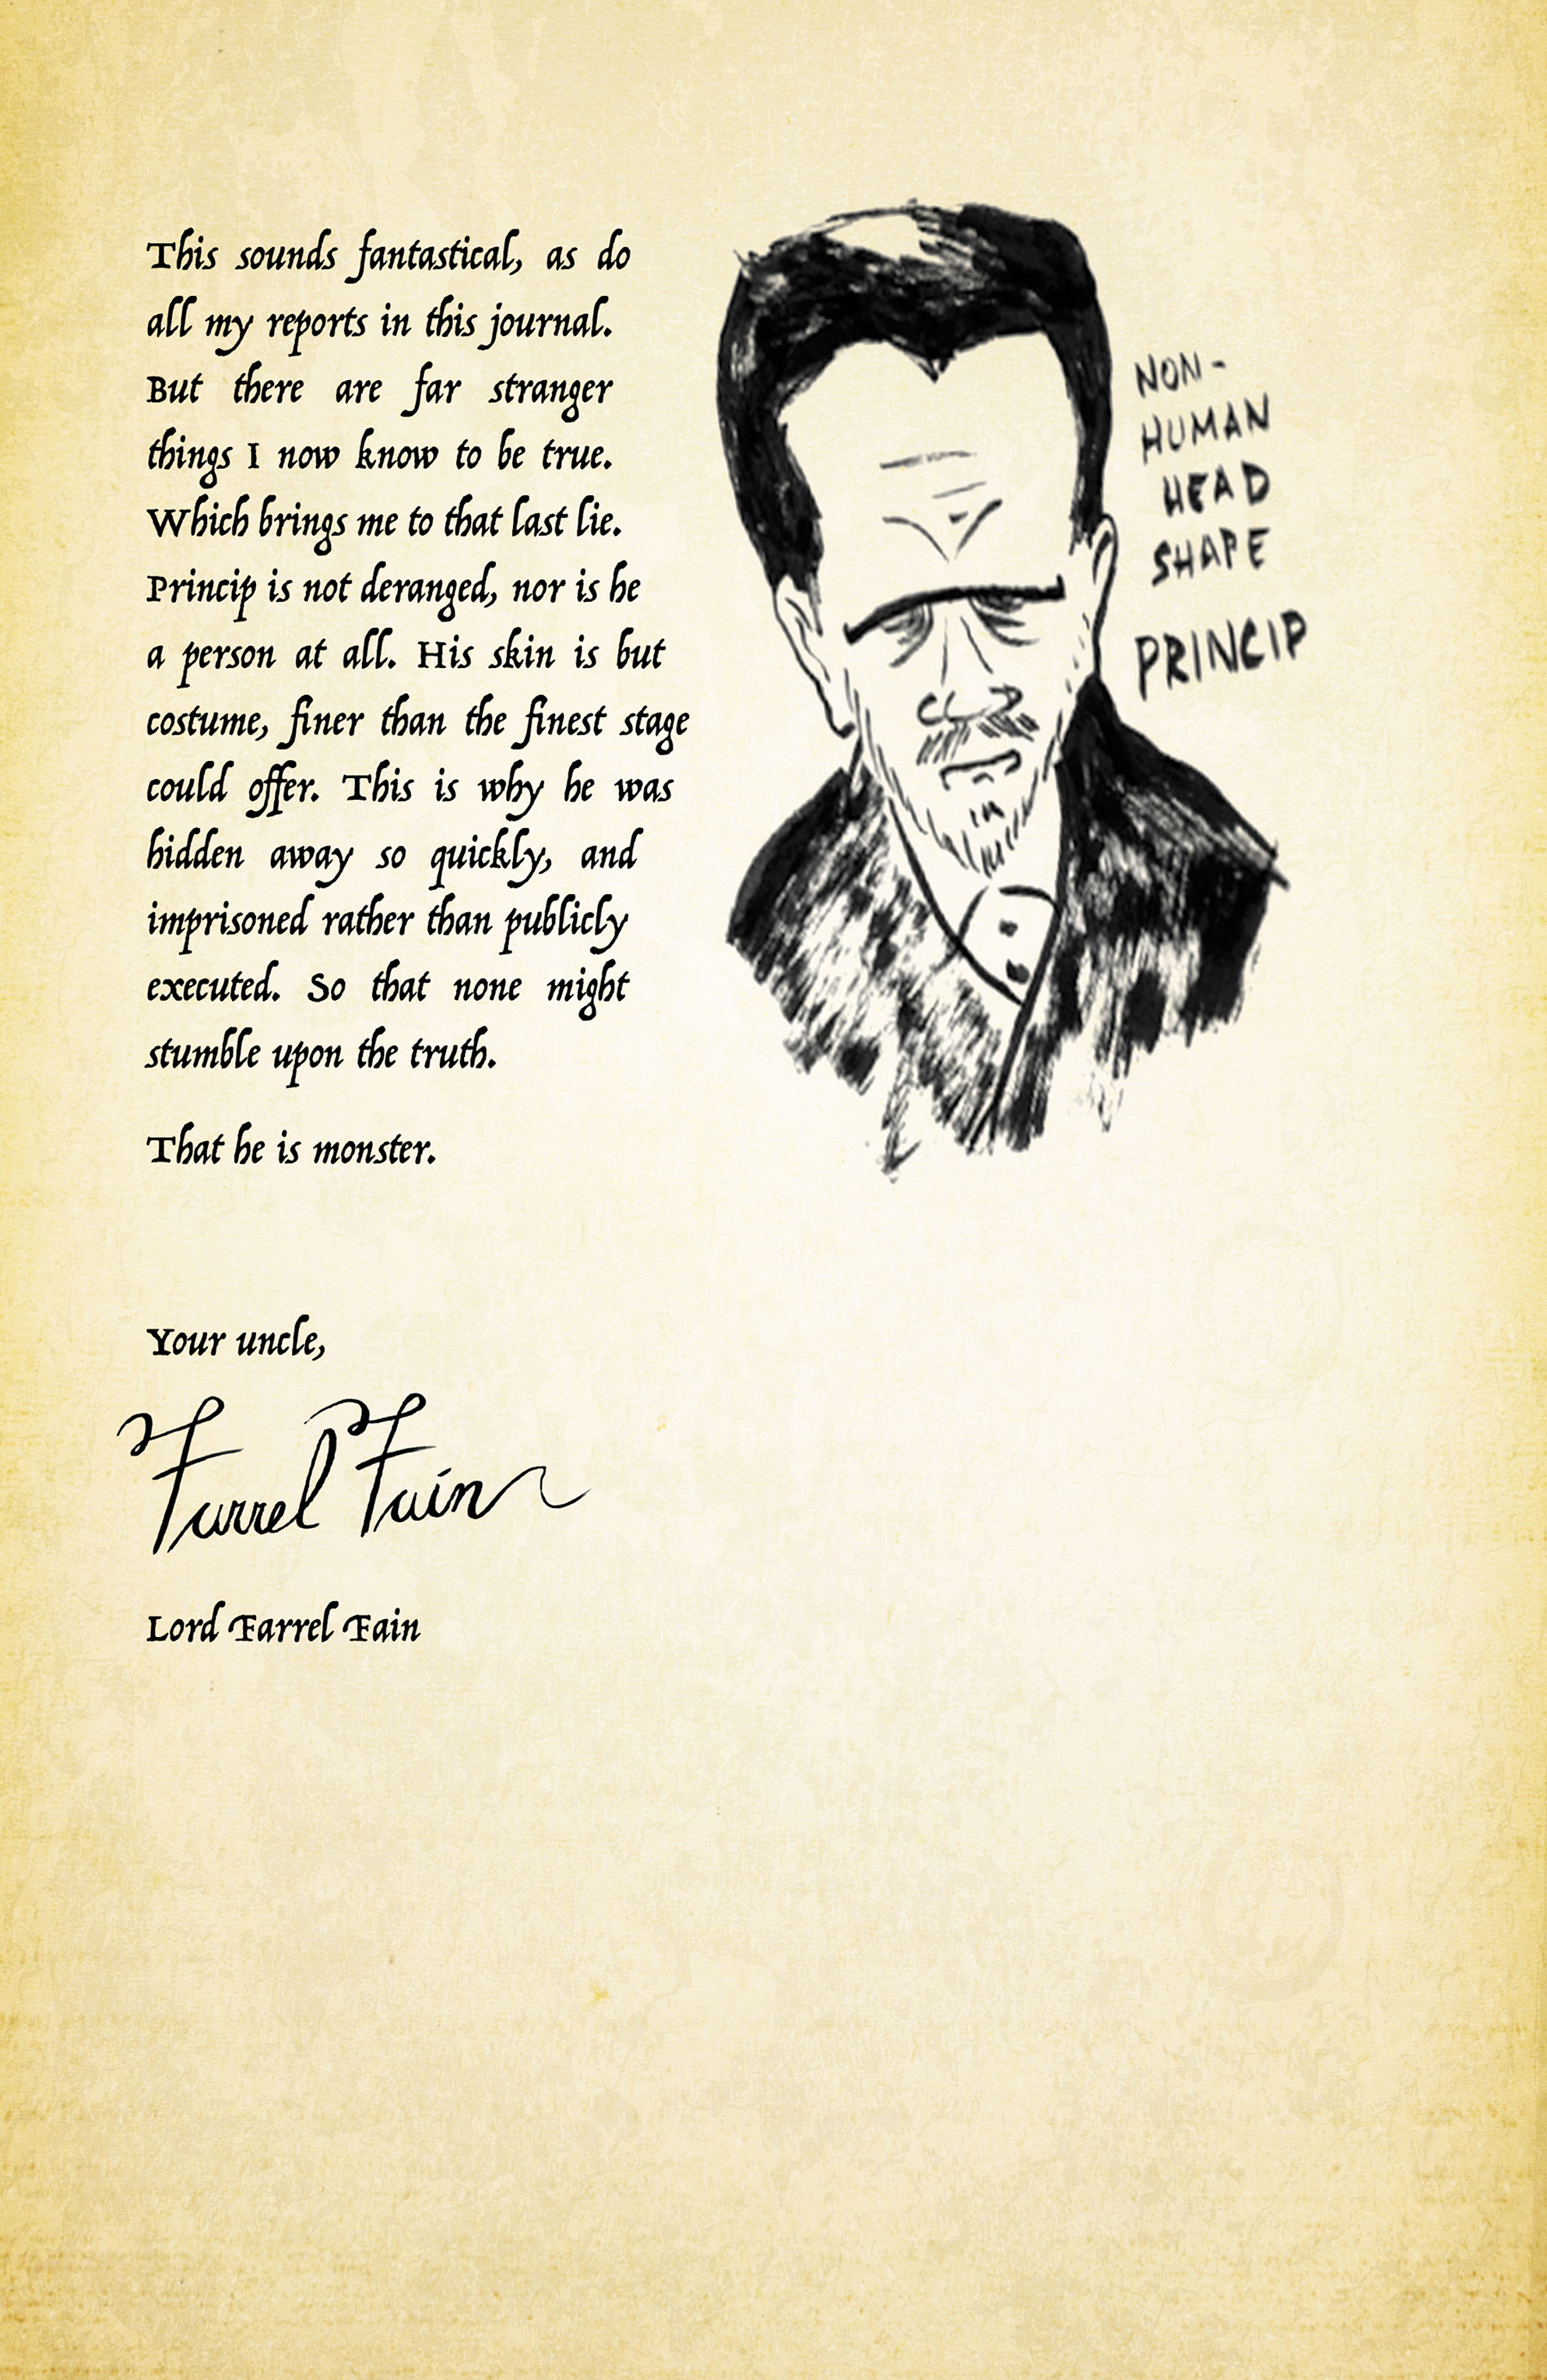 This sounds fantastical, as do
all my reports in this journal.
But there are far stranger
things I now know to be true.
Which brings me to that last lie.
Princip is not deranged, nor is he
a person at all. His skin is but
costume, finer than the finest stage
could offer. This is why he was
hidden away so quickly, and
imprisoned rather than publicly
executed. So that none might
stumble upon the truth.
That he is monster.
NON-
HUMAN
HEAD
SHAPE
PRINCIP
Your uncle,
Farrel Fain
Lord Farrel Fain